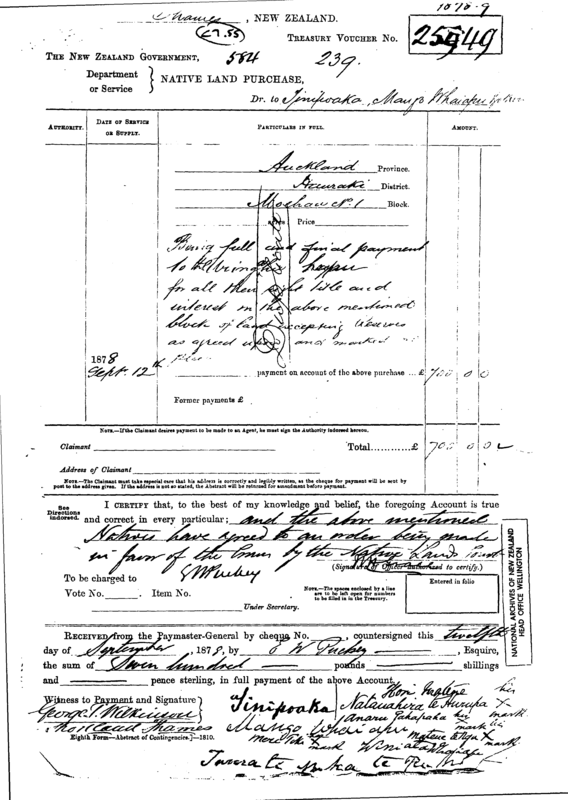 Thames, NEW ZEALAND.
£7.55
TREASURY VOUCHER No. 25949
THE NEW ZEALAND GOVERNMENT, 584 239.
Department or Service } NATIVE LAND PURCHASE,
Dr. to Tinipoaka, Mango Whaiapu
AUTHORITY. DATE OF SERVICE OR SUPPLY. PARTICULARS IN FULL. AMOUNT.
Auckland Province.
Hauraki District.
Moehau No. 1 Block.
Price
Being full and final payment
to the hapu
for all their right title and
interest in the above mentioned
block of land excepting Reserves
as agreed upon and marked
plan
1878
Sept. 12th payment on account of the above purchase ... £ 700 0 0
Former payments £
NOTE.—If the Claimant desires payment to be made to an Agent, he must sign the Authority indorsed hereon.
Claimant Total............£ 700 0 0
Address of Claimant
NOTE.—The Claimant must take especial care that his address is correctly and legibly written, as the cheque for payment will be sent by
post to the address given. If the address is not so stated, the Abstract will be returned for amendment before payment.
See Directions indorsed.
I CERTIFY that, to the best of my knowledge and belief, the foregoing Account is true
and correct in every particular; and the above mentioned
Natives have agreed to an order being made
in favor of the Crown by the Native Lands Court
(Signature of Officer authorised to certify.)
EW Puckey
To be charged to
Vote No. Item No.
NOTE.—The spaces enclosed by a line are to be left open for numbers to be filled in in the Treasury.
Entered in folio
Under Secretary.
NATIONAL ARCHIVES OF NEW ZEALAND
HEAD OFFICE WELLINGTON
RECEIVED from the Paymaster-General by cheque No. , countersigned this twelfth
day of September 1878, by E W Puckey , Esquire,
the sum of Seven hundred pounds shillings
and pence sterling, in full payment of the above Account.
Witness to Payment and Signature }
George
Thames
Eighth Form—Abstract of Contingencies.]—1810.
Tinipoaka
Mango Whaiapu
his
mark